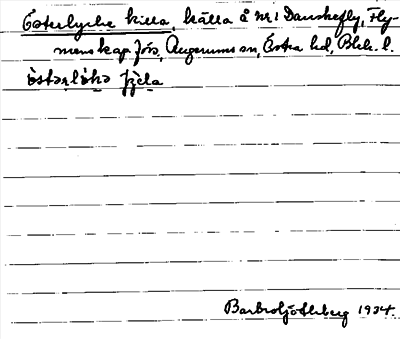 Österlycke källa, källa å nr 1 Danskefly, Fly-
menskap för, Augerums sn, Östra hd, Blek. l.
östərlökə jʒela
Barbro Ljöthberg 1934.